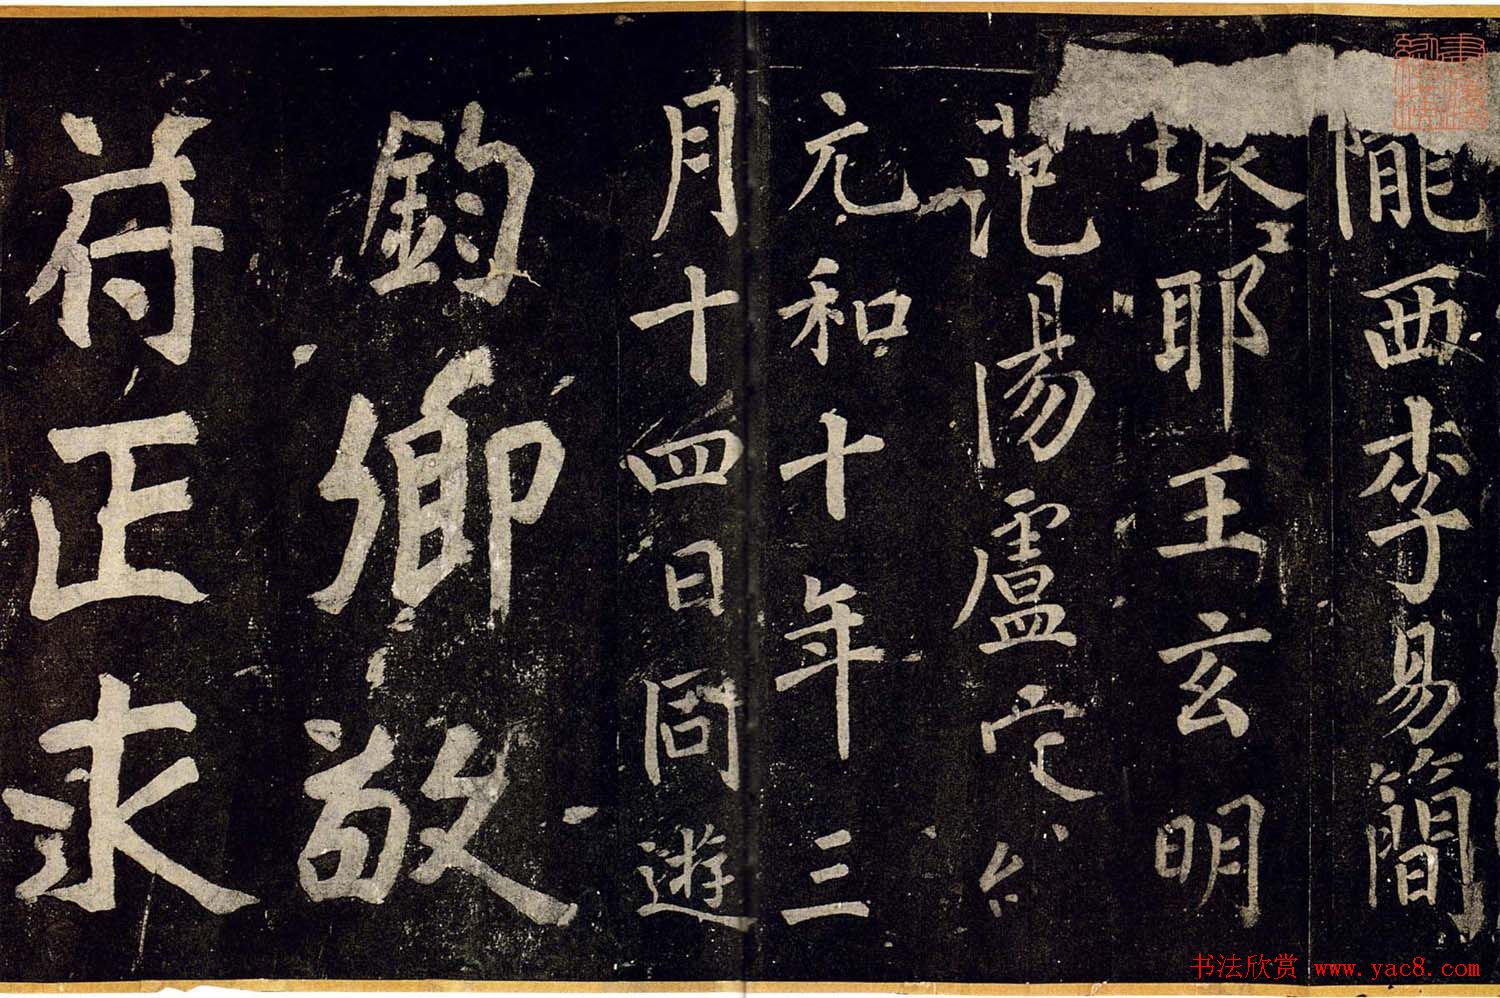 隴西李易簡
琅耶王玄明
范陽盧定
元和十年三
月十四日同遊
鈞卿敬
符正求
书法欣赏 www.yac8.com